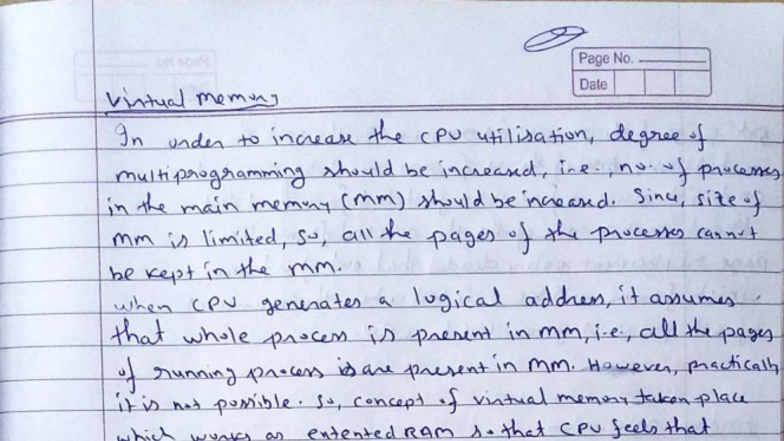 Page No.
Date
Virtual memory
In order to increase the CPU utilisation, degree of
multiprogramming should be increased, i.e., no. of processes
in the main memory (MM) should be increased. Since, size of
MM is limited, so, all the pages of the processes cannot
be kept in the MM.
when CPU generates a logical address, it assumes
that whole process is present in MM, i.e., all the pages
of running process are present in MM. However, practically
it is not possible. So, concept of virtual memory taken place
which works as extented RAM so that CPU feels that